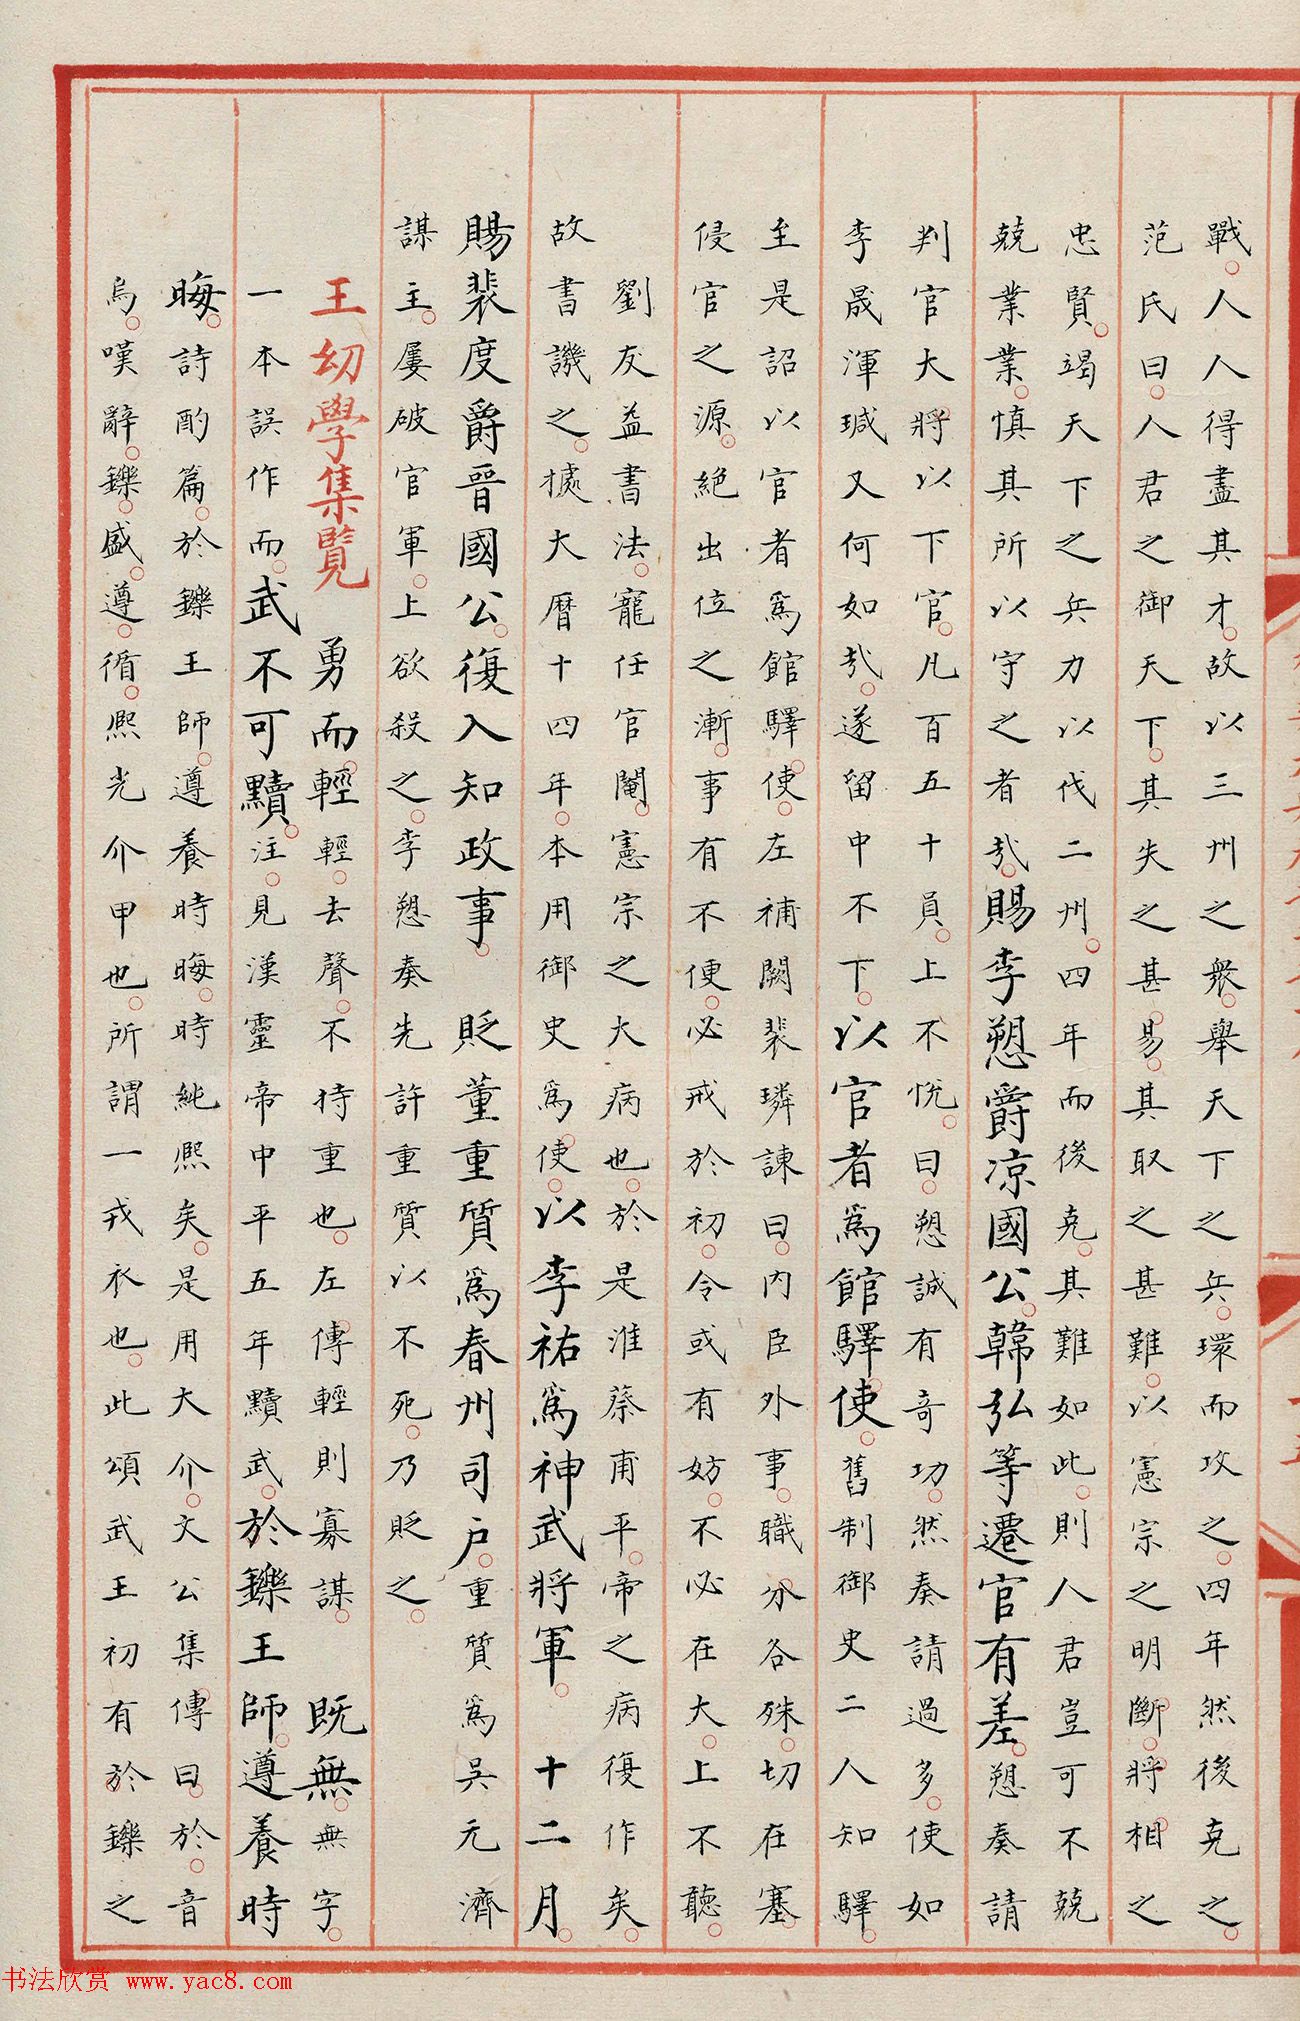 戰人人得盡其才故以三州之衆舉天下之兵環而攻之四年然後克之
范氏曰人君之御天下其失之甚易其取之甚難以憲宗之明斷將相之
忠賢竭天下之兵力以伐二州四年而後克其難如此則人君豈可不兢
兢業業慎其所以守之者哉賜李愬爵凉國公韓弘等遷官有差愬奏請
判官大將以下官凡百五十員上不悅曰愬誠有奇功然奏請過多使如
李晟渾瑊又何如哉遂留中不下以官者爲館驛使舊制御史二人知驛
至是詔以官者爲館驛使左補闕裴璘諫曰内臣外事職分各殊切在塞
侵官之源絕出位之漸事有不便必戒於初令或有妨不必在大上不聽
劉友益書法寵任官閹憲宗之大病也於是淮蔡甫平帝之病復作矣
故書譏之據大曆十四年本用御史爲使以李祐爲神武將軍 十二月
賜裴度爵晉國公復入知政事 貶董重質爲春州司户重質爲吳元濟
謀主屢破官軍上欲殺之李愬奏先許重質以不死乃貶之
王幼學集覽 勇而輕輕去聲不持重也左傳輕則寡謀 既無無字
一本誤作而武不可黷注見漢靈帝中平五年黷武於鑠王師遵養時
晦詩酌篇於鑠王師遵養時晦時純熙矣是用大介文公集傳曰於音
烏嘆辭鑠盛遵循熙光介甲也所謂一戎衣也此頌武王初有於鑠之
书法欣赏 www.yac8.com